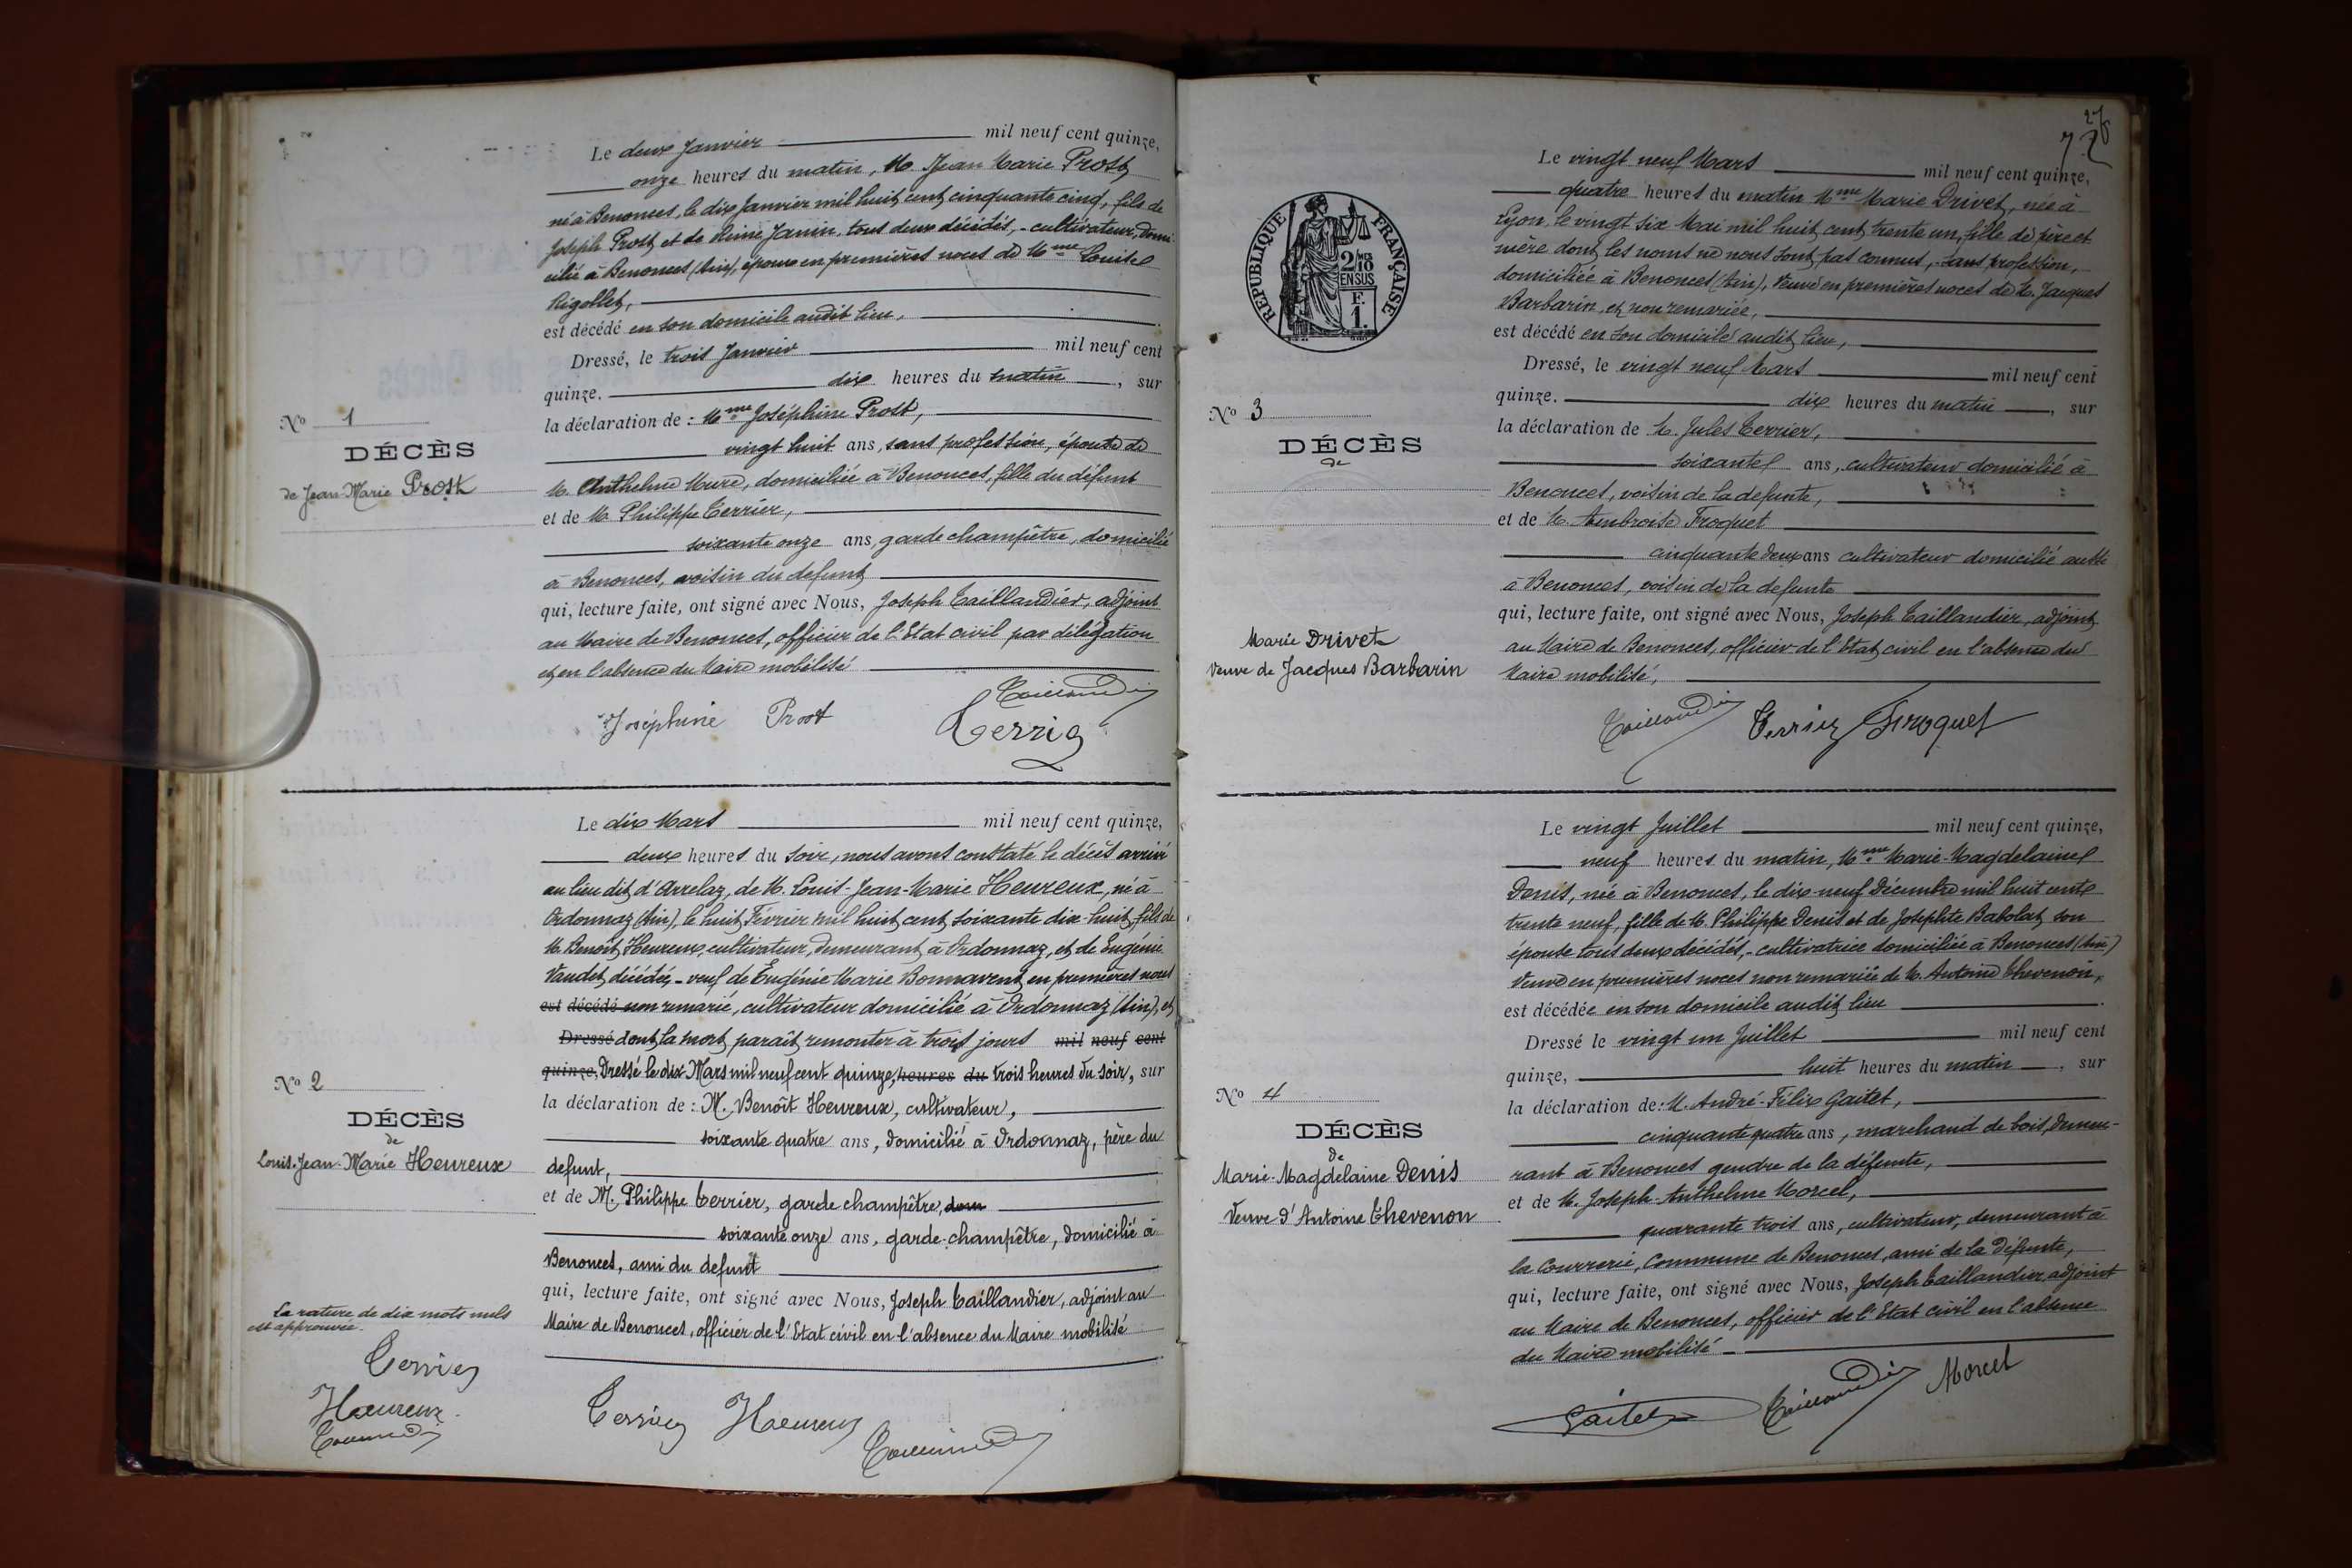 Le deux Janvier mil neuf cent quinze,
onze heures du matin, M. Jean Marie Prost,
né à Benonces, le dix Janvier mil huit cent cinquante cinq, fils de
Joseph Prost et de Reine Janin, tous deux décédés, - cultivateur, domi-
cilié à Benonces (Ain), époux en premières noces de Mme Louise
Rigollet,
est décédé en son domicile audit lieu,
Dressé, le trois Janvier mil neuf cent
quinze. dix heures du matin, sur
la déclaration de : Mme Joséphine Prost,
vingt huit ans, sans profession, épouse de
M. Anthelme Mure, domiciliée à Benonces, fille du défunt
et de M. Philippe Terrier,
soixante onze ans, garde champêtre, domicilié
à Benonces, voisin du defunt
qui, lecture faite, ont signé avec Nous, Joseph Taillandier, adjoint
au Maire de Benonces, officier de l'Etat civil par délégation
et en l'absence du Maire mobilisé
Taillandier
Joséphine Prost Terrier
No 1
DÉCÈS
de Jean-Marie Prost
Le dix Mars mil neuf cent quinze,
deux heures du soir, nous avons constaté le décès arrivé
au lieu dit d'Arrelaz, de M. Louis-Jean-Marie Heureux, né à
Ordonnaz (Ain), le huit Février mil huit cent soixante dix-huit, fils de
M. Benoît Heureux, cultivateur, demeurant à Ordonnaz, et de Eugénie
Vaudet, décédée, - veuf de Eugénie Marie Bonnavent en premières noces
est décédé non remarié, cultivateur domicilié à Ordonnaz (Ain), et
Dressé dont la mort paraît remonter à trois jours mil neuf cent
quinze, Dressé le dix Mars mil neuf cent quinze, heures du trois heures du soir, sur
la déclaration de : M. Benoît Heureux, cultivateur,
soixante quatre ans, domicilié à Ordonnaz, père du
defunt,
et de M. Philippe Terrier, garde champêtre, dom
soixante onze ans, garde-champêtre, domicilié à
Benonces, ami du defunt
qui, lecture faite, ont signé avec Nous, Joseph Taillandier, adjoint au
Maire de Benonces, officier de l'Etat civil en l'absence du Maire mobilisé
Terrier Heureux Taillandier
No 2
DÉCÈS
de
Louis-Jean-Marie Heureux
La rature de dix mots nuls
est approuvée.
Terrier
Heureux
Taillandier
276
72
RÉPUBLIQUE FRANÇAISE
2 MES 10
EN SUS
F.
1.
Le vingt neuf Mars mil neuf cent quinze,
quatre heures du matin Mme Marie Drivet, née à
Lyon, le vingt six Mai mil huit cent trente un, fille de père et
mère dont les noms ne nous sont pas connus, - sans profession, -
domiciliée à Benonces (Ain), Veuve en premières noces de M. Jacques
Barbarin, et non remariée,
est décédé en son domicile audit lieu,
Dressé, le vingt neuf Mars mil neuf cent
quinze. dix heures du matin, sur
la déclaration de M. Jules Terrier,
soixante ans, cultivateur domicilié à
Benonces, voisin de la defunte,
et de M. Ambroise Froquet
cinquante deux ans cultivateur domicilié aussi
à Benonces, voisin de la defunte
qui, lecture faite, ont signé avec Nous, Joseph Taillandier, adjoint
au Maire de Benonces, officier de l'Etat civil en l'absence du
Maire mobilisé,
Taillandier Terrier Froquet
No 3
DÉCÈS
de
Marie Drivet
Veuve de Jacques Barbarin
Le vingt Juillet mil neuf cent quinze,
neuf heures du matin, Mme Marie-Magdelaine
Denis, née à Benonces, le dix-neuf Décembre mil huit cent
trente neuf, fille de M. Philippe Denis et de Josephte Babolat, son
épouse tous deux décédés, - cultivatrice domiciliée à Benonces (Ain)
Veuve en premières noces non remariée de M. Antoine Thevenon,
est décédée en son domicile audit lieu
Dressé le vingt un Juillet mil neuf cent
quinze, huit heures du matin, sur
la déclaration de : M. André-Félix Gaitet,
cinquante quatre ans, marchand de bois, demeu-
rant à Benonces gendre de la défunte,
et de M. Joseph-Anthelme Morcel,
quarante trois ans, cultivateur, demeurant à
la Courrerie, Commune de Benonces, ami de la défunte,
qui, lecture faite, ont signé avec Nous, Joseph Taillandier, adjoint
au Maire de Benonces, officier de l'Etat civil en l'absence
du Maire mobilisé
Gaitet Taillandier Morcel
No 4
DÉCÈS
de
Marie-Magdelaine Denis
Veuve d'Antoine Thevenon